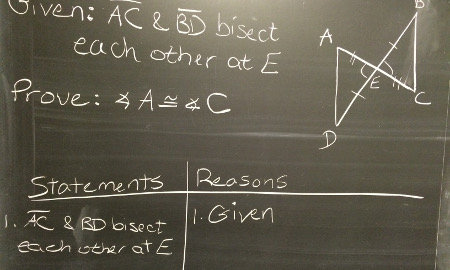 Given: AC & BD bisect
each other at E
Prove: ∡ A ≅ ∡ C
A
B
E
C
D
Statements
Reasons
1. AC & BD bisect
each other at E
1. Given